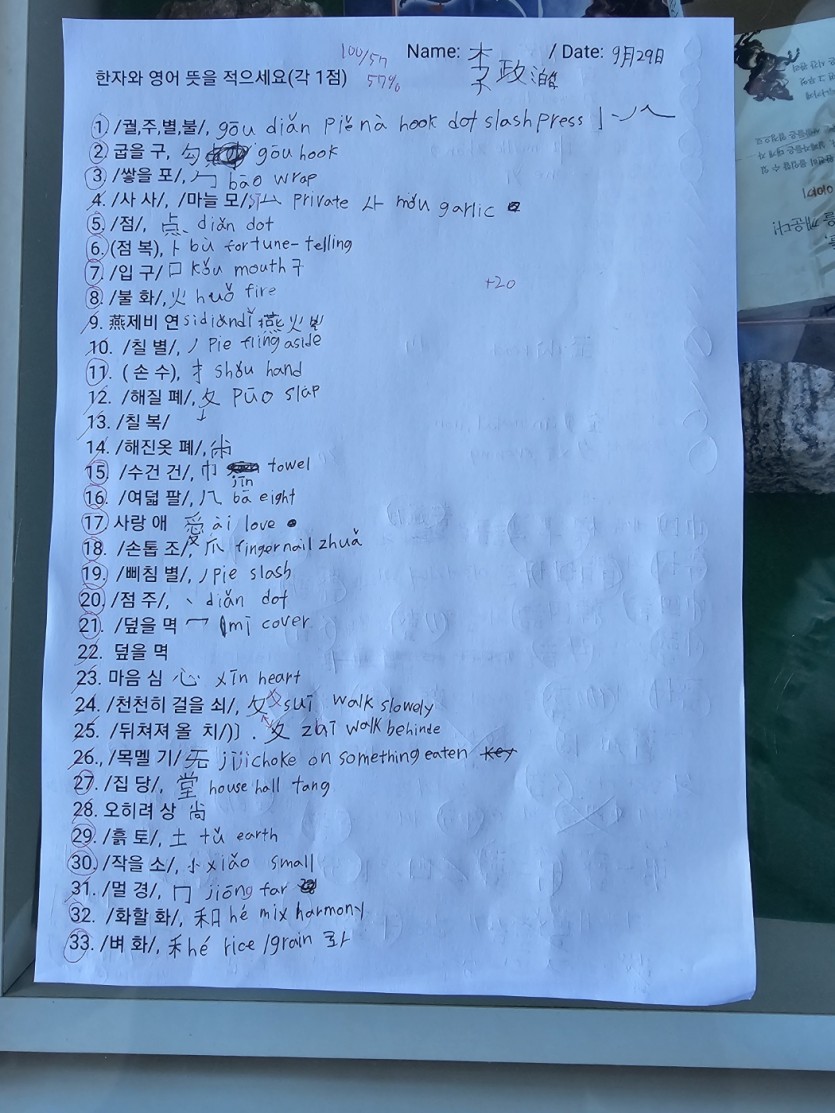 100/57
57%
Name: 李政澔 / Date: 9月29日
한자와 영어 뜻을 적으세요(각 1점)
1. /궐,주,별,불/, gōu diǎn piě nà hook dot slash press 亅丶丿乀
2. 굽을 구, 勾 gōu hook
3. /쌓을 포/, 勹 bāo wrap
4. /사 사/, /마늘 모/, 厶 private 厶 mǒu garlic
5. /점/, 点 diǎn dot
6. (점 복), 卜 bǔ fortune-telling
7. /입 구/ 口 kǒu mouth 구
8. /불 화/, 火 huǒ fire
+20
9. 燕제비 연 sidiǎndǐ 燕火灬
10. /칠 별/, 丿 pie fling aside
11. (손 수), 扌 shǒu hand
12. /해질 폐/, 攵 pūo slap
13. /칠 복/
14. /해진옷 폐/, 㡀
15. /수건 건/, 巾 jīn towel
16. /여덟 팔/, 八 bā eight
17. 사랑 애 愛 ài love
18. /손톱 조/, 爪 fingernail zhuǎ
19. /삐침 별/, 丿 pie slash
20. /점 주/, 丶 diǎn dot
21. /덮을 멱 冖 mī cover
22. 덮을 멱
23. 마음 심 心 xīn heart
24. /천천히 걸을 쇠/, 夊 suī walk slowely
25. /뒤쳐져 올 치/)]. 夂 zhī walk behinde
26., /목멜 기/ 旡 jìji choke on something eaten key
27. /집 당/, 堂 house hall tang
28. 오히려 상 尚
29. /흙 토/, 土 tǔ earth
30. /작을 소/, 小 xiǎo small
31. /멀 경/, 冂 jiōng far
32. /화할 화/, 和 hé mix harmony
33. /벼 화/, 禾 hé rice /grain 화